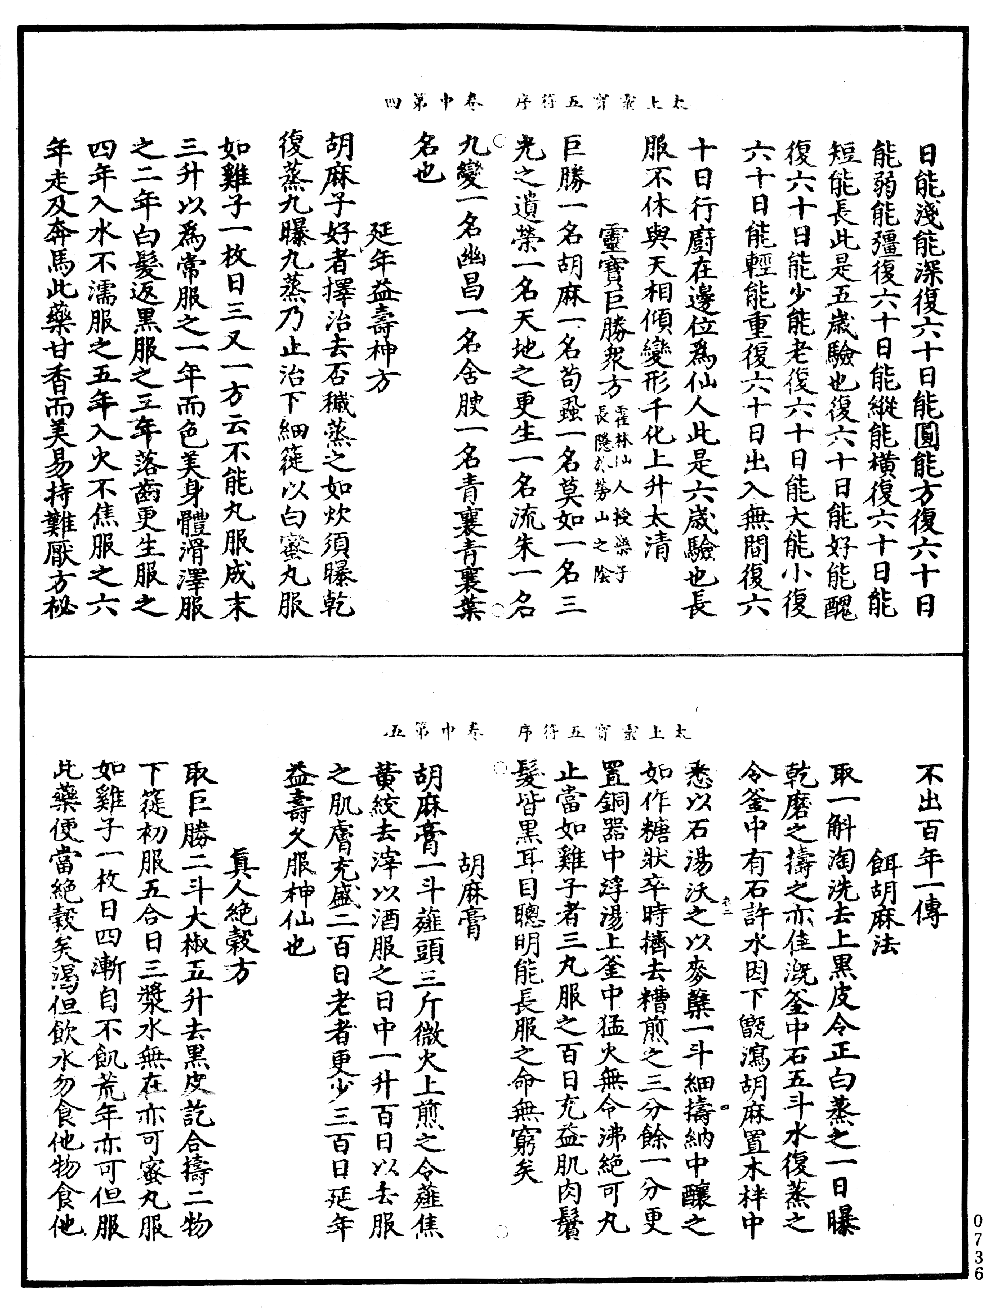 太上靈寶五符序　卷中第四
日能淺能深復六十日能圓能方復六十日
能弱能彊復六十日能縱能橫復六十日能
短能長此是五歲驗也復六十日能好能醜
復六十日能少能老復六十日能大能小復
六十日能輕能重復六十日出入無間復六
十日行廚在邊位為仙人此是六歲驗也長
服不休與天相傾變形千化上升太清
靈寶巨勝眾方霍林仙人授樂子長隱於勞山之陰
巨勝一名胡麻一名苟蝨一名莫如一名三
光之遺榮一名天地之更生一名流朱一名
九變一名幽昌一名含映一名青襄青襄葉
名也
延年益壽神方
胡麻子好者擇治去否穢蒸之如炊須曝乾
復蒸九曝九蒸乃止治下細簁以白蜜丸服
如雞子一枚日三又一方云不能丸服成末
三升以為常服之一年而色美身體滑澤服
之二年白髮返黑服之三年落齒更生服之
四年入水不濡服之五年入火不焦服之六
年走及奔馬此藥甘香而美易持難厭方祕
太上靈寶五符序　卷中第五
不出百年一傳
餌胡麻法
取一斛淘洗去上黑皮令正白蒸之一日曝
乾磨之擣之亦佳溉釜中石五斗水復蒸之
令釜中有石許水因下甑瀉胡麻置木柈中
悉以石湯沃之以麥蘖一斗細擣納中釀之
如作糖狀卒時擠去糟煎之三分餘一分更
置銅器中浮湯上釜中猛火無令沸絕可丸
止當如雞子者三丸服之百日充益肌肉鬚
髮皆黑耳目聰明能長服之命無窮矣
胡麻膏
胡麻膏一斗薤頭三斤微火上煎之令薤焦
黃絞去滓以酒服之日中一升百日以去服
之肌膚充盛二百日老者更少三百日延年
益壽久服神仙也
真人絕穀方
取巨勝二斗大椒五升去黑皮訖合擣二物
下簁初服五合日三漿水無在亦可蜜丸服
如雞子一枚日四漸自不飢荒年亦可但服
此藥便當絕穀矣渴但飲水勿食他物食他
0736